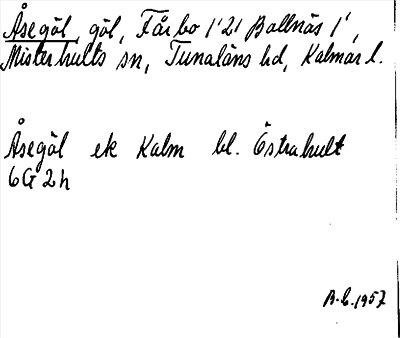 Åsegöl, göl, Fårbo 1'21 Ballnäs 1',
Misterhults sn, Tunaläns hd, Kalmar l.
Åsegöl ek Kalm bl. Östrahult
6G 2h
B.C. 1957